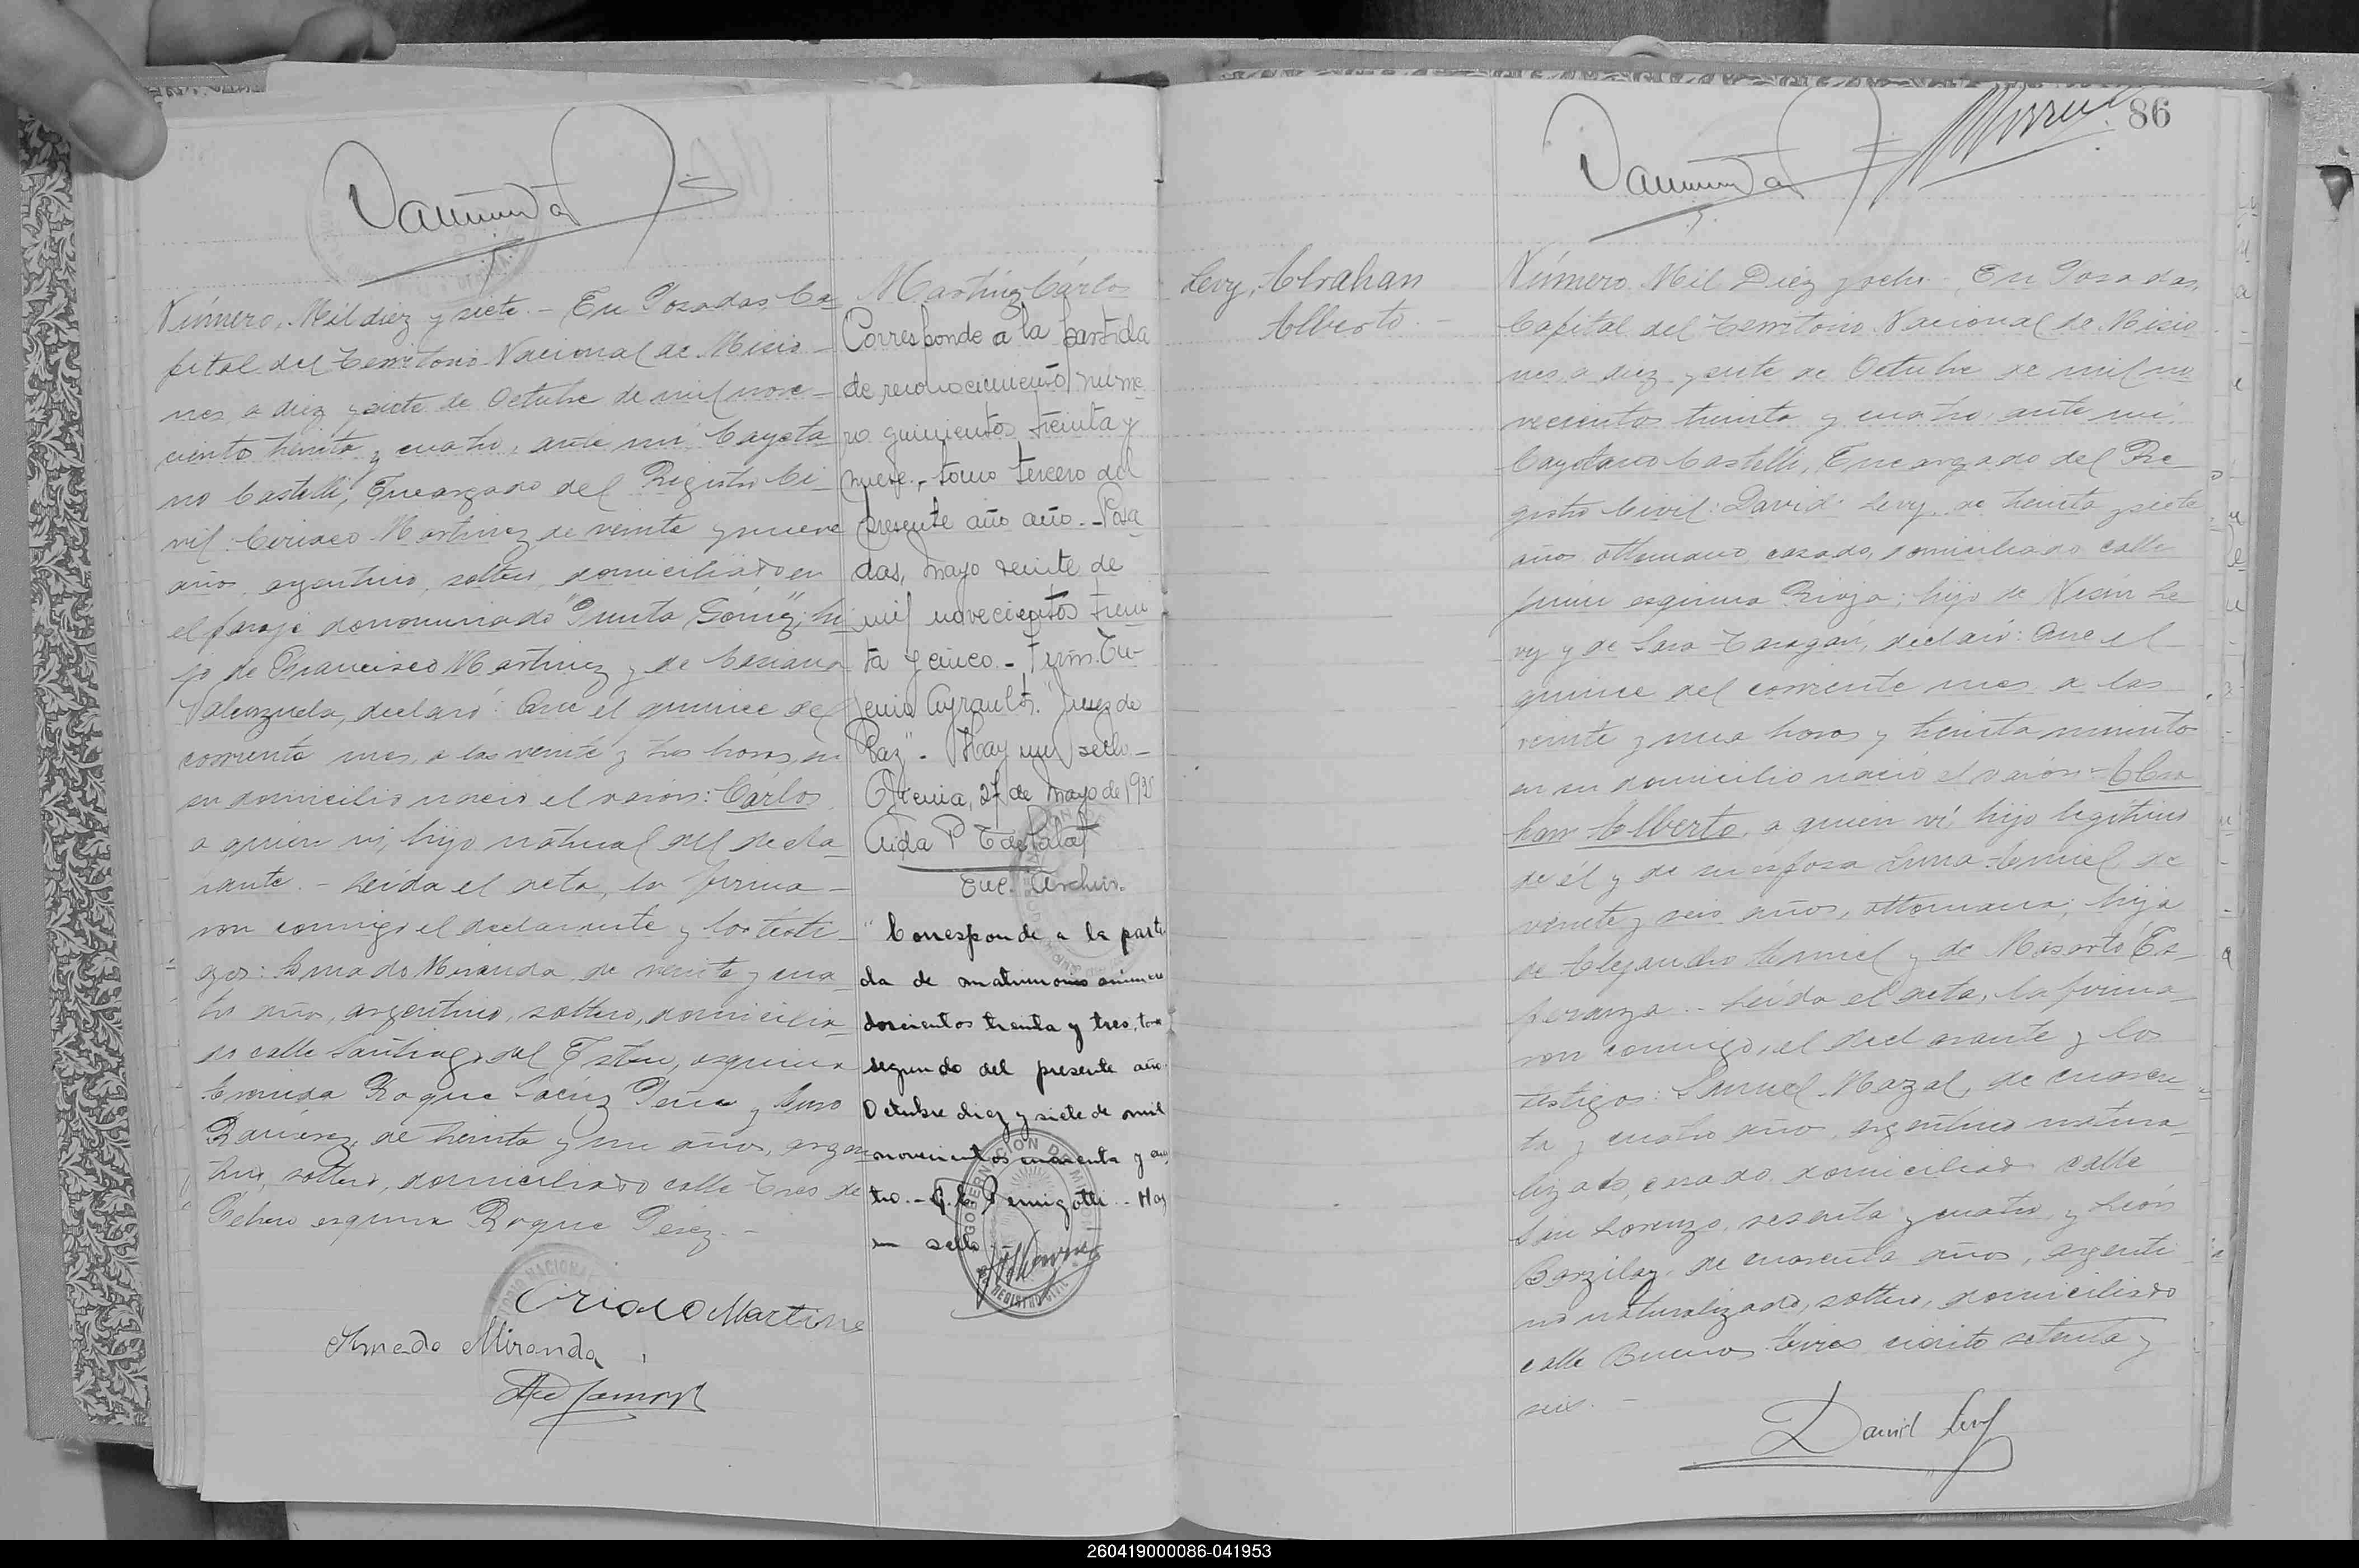 Número Mil diez y siete. - En Posadas, Ca
pital del Territorio Nacional de Misio-
nes, a diez y siete de Octubre de mil nove-
ciento treinta y cuatro, ante mí Cayeta
no Castelli, Encargado del Registro Ci-
vil: Ciriaco Martinez de veinte y nueve
años, argentino, soltero, domiciliado en
el paraje denominado "Punta Gómez", hi
jo de Francisco Martinez y de Casiana
Valenzuela, declaró: Que el quince del
corriente mes, a las veinte y tres horas, en
su domicilio nació el varón: Cárlos
a quien ví, hijo natural del decla-
rante. - Leída el acta, la firma-
ron conmigo el declarante y los testi-
gos: Amado Miranda, de veinte y cua-
tro años, argentino, soltero, domicilia
do calle Santiago del Estero, esquina
Avenida Roque Saenz Peña y
Ramirez, de treinta y un años, argen
tino, soltero, domiciliado calle Tres de
Febrero esquina Roque Perez. -
Ciriaco Martinez
Amado Miranda
Martinez Cárlos
Corresponde a la partida
de reconocimiento núme
ro quinientos treinta y
nueve, tomo tercero del
presente año año. - Posa
das, Mayo veinte de
mil novecientos trein
ta y cinco. - Firm. Eu-
genio Ayrault. "Juez de
Paz". - Hay un sello. -
27 de Mayo de 1935
Aida P
Enc. Archiv.
"Corresponde a la parti
da de matrimonio número
doscientos treinta y tres, tomo
segundo del presente año.
Octubre diez y siete de mil
novecientos cuarenta y cua
tro. - Hay
un sello
GOBERNACION DE MISIONES
REGISTRO CIVIL
86
Levy, Abrahan
Alberto. -
Número Mil Diez y ocho - En Posadas,
Capital del Territorio Nacional de Misio
nes, a diez y siete de Octubre de mil no
vecientos treinta y cuatro, ante mí
Cayetano Castelli, Encargado del Re
gistro Civil: David Levy, de treinta y siete
años, ottomano, casado, domiciliado calle
Junin esquina Rioja; hijo de Nisin Le
vy y de Sara Taragan, declaró: Que el
quince del corriente mes a las
veinte y una horas y treinta minutos
en su domicilio nació el varón: Abra
han Alberto, a quien ví, hijo legítimo
de él y de su esposa Luna Amiel de
veinte y seis años, ottomana; hija
de Alejandro Amiel y de Masarto Es-
peranza. - Leída el acta, la firma-
ron conmigo, el declarante y los
testigos: Samuel Nazal, de cuaren
ta y cuatro años, argentino natura-
lizado, casado domiciliado calle
San Lorenzo, sesenta y cuatro, y León
Barzilay, de cuarenta años, argenti
no naturalizado, soltero, domiciliado
calle Buenos Aires ciento setenta y
seis. -
David Levy
260419000086-041953